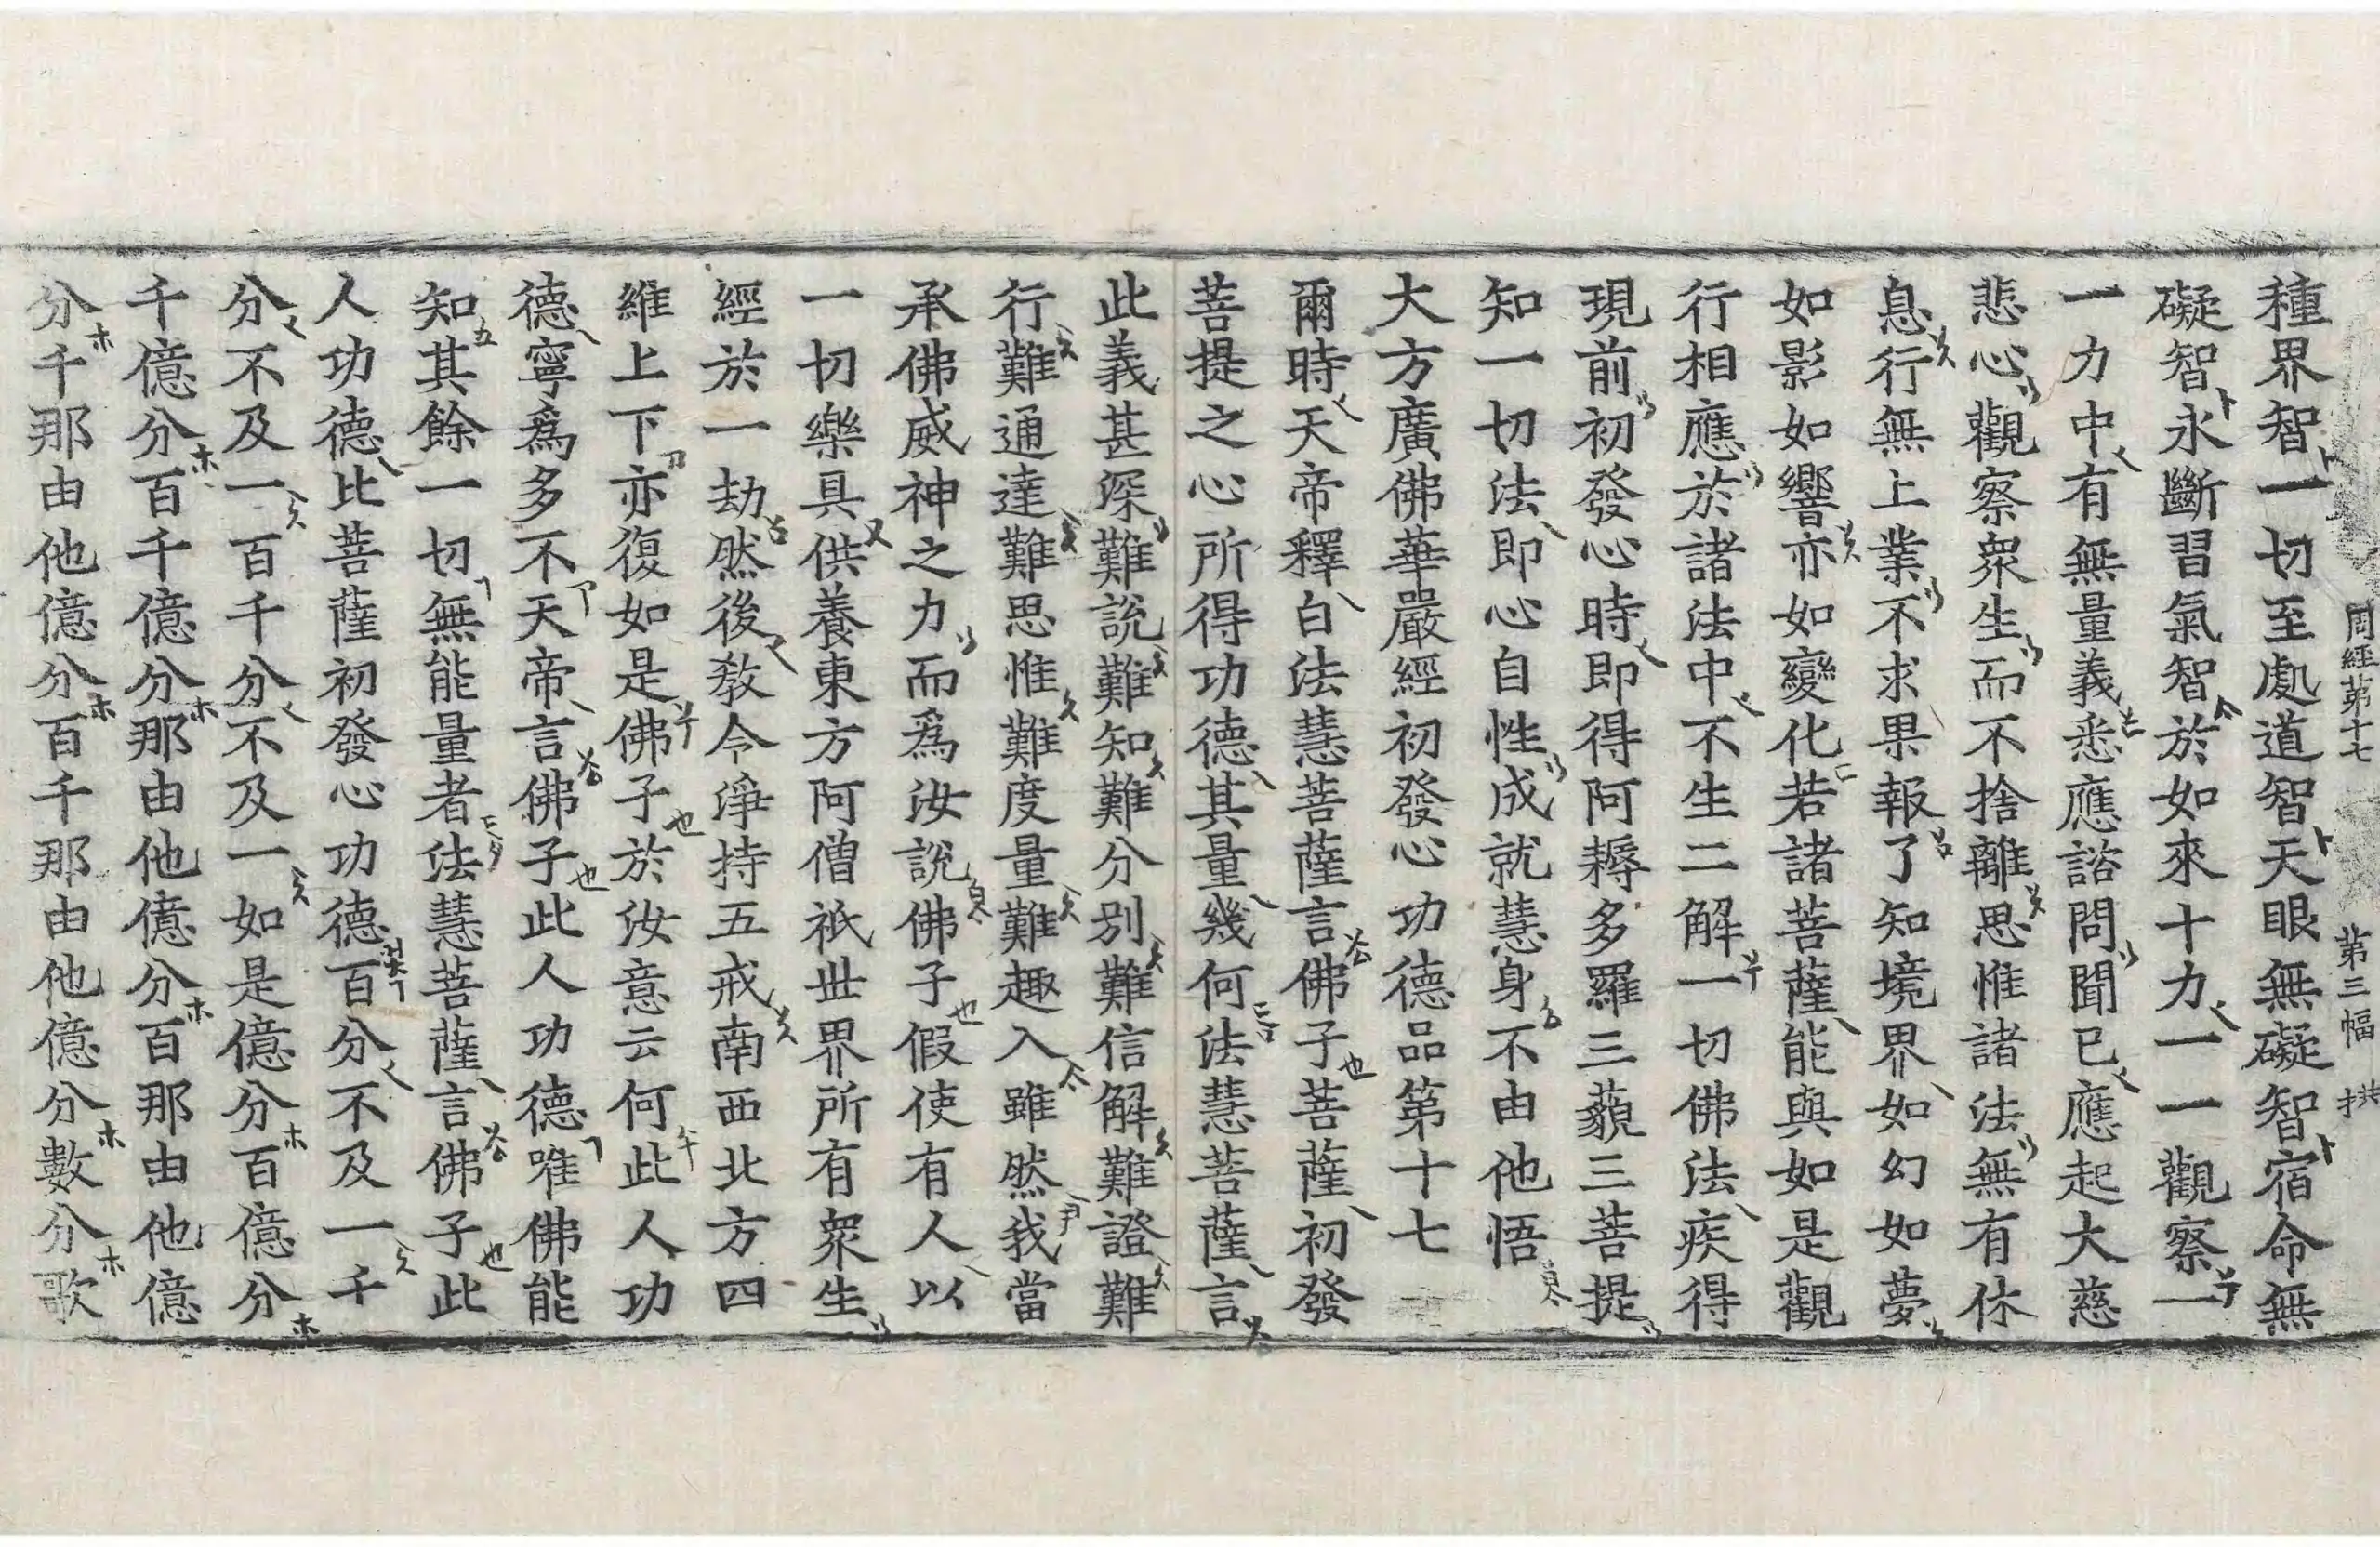 周経苐十七 苐三幅 拱
種界智一切至處道智天眼無礙智宿命無
礙智永斷習氣智於如來十力一一觀察一
一力中有無量義悉應諮問聞已應起大慈
悲心觀察衆生而不捨離思惟諸法無有休
息行無上業不求果報了知境界如幻如夢
如影如響亦如變化若諸菩薩能與如是觀
行相應於諸法中不生二解一切佛法疾得
現前初發心時即得阿耨多羅三藐三菩提
知一切法即心自性成就慧身不由他悟
大方廣佛華嚴經初發心功德品第十七
爾時天帝釋白法慧菩薩言佛子菩薩初發
菩提之心所得功德其量幾何法慧菩薩言
此義甚深難說難知難分別難信解難證難
行難通達難思惟難度量難趣入雖然我當
承佛威神之力而爲汝說佛子假使有人以
一切樂具供養東方阿僧祇世界所有衆生
經於一劫然後教令淨持五戒南西北方四
維上下亦復如是佛子於汝意云何此人功
德寧爲多不天帝言佛子此人功德唯佛能
知其餘一切無能量者法慧菩薩言佛子此
人功德比菩薩初發心功德百分不及一千
分不及一百千分不及一如是億分百億分
千億分百千億分那由他億分百那由他億
分千那由他億分百千那由他億分數分歌